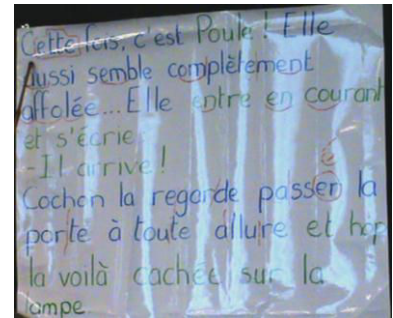 Cette fois, c'est Poule ! Elle
aussi semble complètement
affolée... Elle entre en courant
et s'écrie
- Il arrive !
é
Cochon la regarde passer la
porte à toute allure et hop
la voilà cachée sur la
lampe